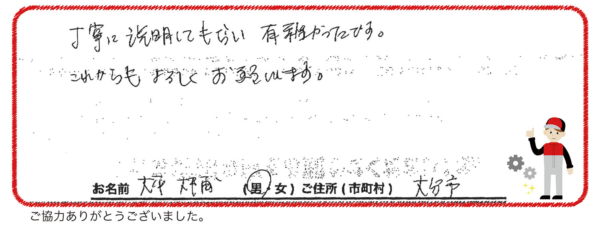 丁寧に説明してもらい有難かったです。
これからもよろしくお願いします。
お名前 (男・女) ご住所(市町村) 大分市
ご協力ありがとうございました。